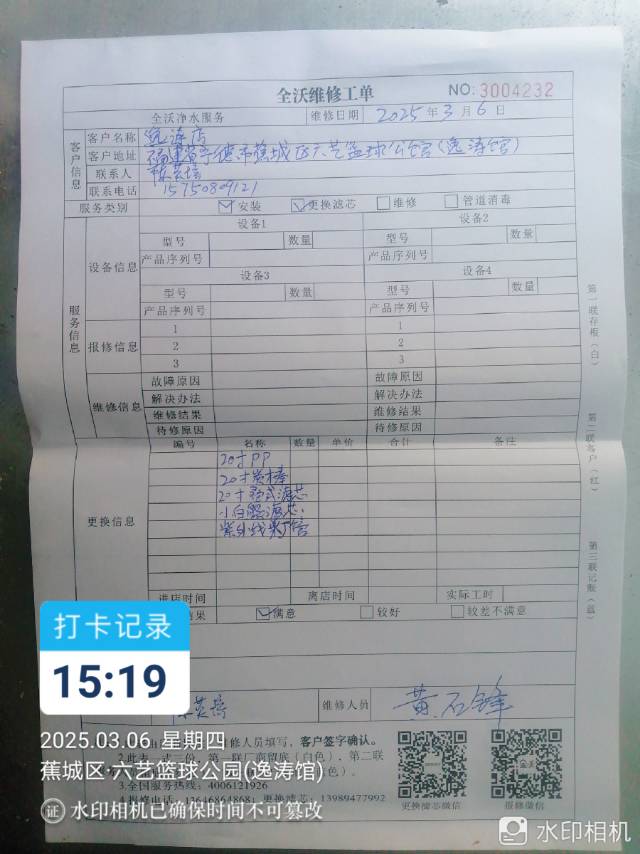 全沃维修工单
NO: 3004232
全沃净水服务 维修日期 2025年3月6日
客户信息
客户名称 逸涛店
客户地址 福建省宁德市蕉城区六艺篮球公馆(逸涛馆)
联系人
联系电话 15750809121
服务类别 安装 更换滤芯 维修 管道消毒
服务信息
设备信息
设备1 设备2
型号 数量 型号 数量
产品序列号 产品序列号
设备3 设备4
型号 数量 型号 数量
产品序列号 产品序列号
报修信息
1 1
2 2
3 3
维修信息
故障原因 故障原因
解决办法 解决办法
维修结果 维修结果
待修原因 待修原因
更换信息
编号 名称 数量 单价 合计 备注
20寸PP
20寸炭棒
20寸 滤芯
滤芯
紫外线
进店时间 离店时间 实际工时
结果 满意 较好 较差不满意
维修人员 黄石锋
维修人员填写，客户签字确认。
2.此表一式三份，第一联厂商留底（白色），第二联
色）。
3.全国服务热线：4006121926
4.报修电话：13646864868；更换滤芯：13989477992
更换滤芯微信 报修微信
第一联存根（白）
第二联客户（红）
第三联记账（蓝）
打卡记录
15:19
2025.03.06 星期四
蕉城区·六艺篮球公园(逸涛馆)
证 水印相机已确保时间不可篡改
水印相机